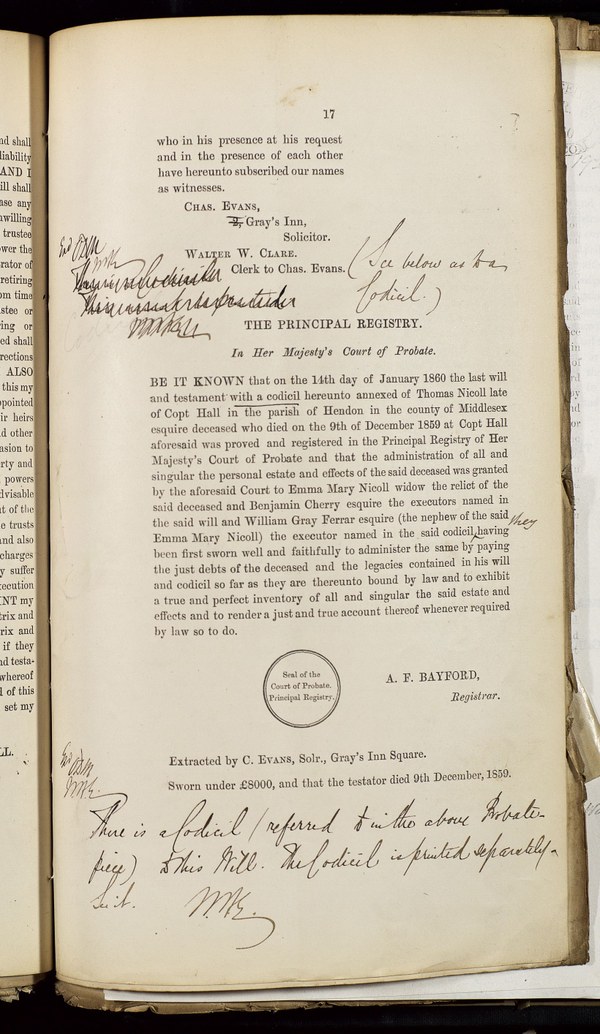 17
who in his presence at his request
and in the presence of each other
have hereunto subscribed our names
as witnesses.
CHAS. EVANS,
2, Gray's Inn,
Solicitor.
WALTER W. CLARE.
Clerk to Chas. Evans.
(See below as to a
Codicil.)
THE PRINCIPAL REGISTRY.
In Her Majesty's Court of Probate.
BE IT KNOWN that on the 14th day of January 1860 the last will
and testament with a codicil hereunto annexed of Thomas Nicoll late
of Copt Hall in the parish of Hendon in the county of Middlesex
esquire deceased who died on the 9th of December 1859 at Copt Hall
aforesaid was proved and registered in the Principal Registry of Her
Majesty's Court of Probate and that the administration of all and
singular the personal estate and effects of the said deceased was granted
by the aforesaid Court to Emma Mary Nicoll widow the relict of the
said deceased and Benjamin Cherry esquire the executors named in
the said will and William Gray Ferrar esquire (the nephew of the said
Emma Mary Nicoll) the executor named in the said codicil they having
been first sworn well and faithfully to administer the same by paying
the just debts of the deceased and the legacies contained in his will
and codicil so far as they are thereunto bound by law and to exhibit
a true and perfect inventory of all and singular the said estate and
effects and to render a just and true account thereof whenever required
by law so to do.
Seal of the
Court of Probate.
Principal Registry.
A. F. BAYFORD,
Registrar.
Extracted by C. EVANS, Solr., Gray's Inn Square.
Sworn under £8000, and that the testator died 9th December, 1859.
There is a Codicil (referred to in the above Probate-
piece) to this Will. The Codicil is printed separately-
See it.
nd shall
liability
AND I
ill shall
ase any
willing
trustee
wer the
rator of
retiring
om time
stee or
ing or
ed shall
rections
ALSO
this my
pointed
ir heirs
d other
asion to
rty and
powers
dvisable
t of the
e trusts
nd also
charges
y suffer
ecution
NT my
trix and
rix and
if they
d testa-
whereof
l of this
set my
LL.